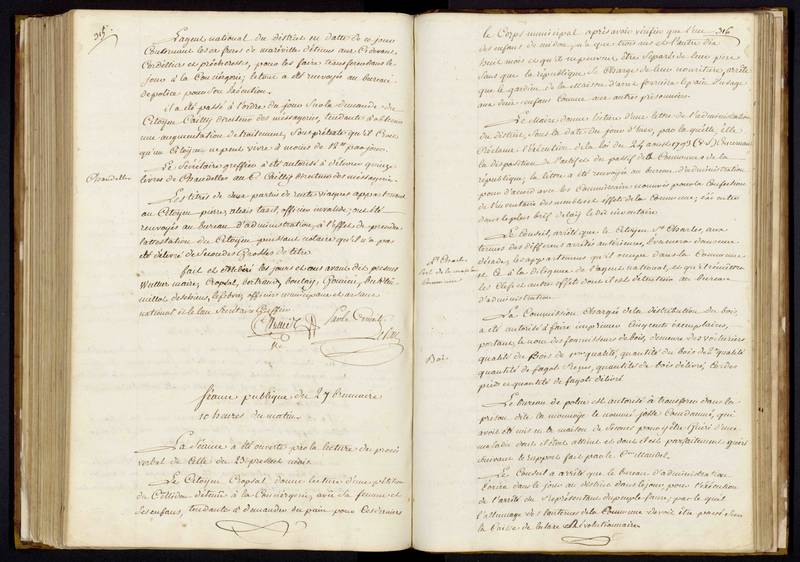 315.
L'agent national du district en datte de ce jour
Contenant les ex freres de maréville détenus aux Cidevant
Cordeliers et prêcheresses, pour les faire transférer dans le
jour à la Conciergerie; lettre a été renvoyée au bureau
de police pour son Exécution.
il a été passé à l'ordre du jour sur la demande du
Citoyen Cailly directeur des messageries, tendante à obtenir
une augmentation de traitement, sous prétexte qu'il Croit
qu'un Citoyen ne peut vivre à moins de par jour.
Le Secrétaire greffier a été autorisé à délivrer quinze
Chandelles
livres de Chandelles au C. Cailly directeur des messageries.
Les titres de deux parties de rente viageres appartenant
au Citoyen pierre alexis officier invalide, ont été
renvoyés au bureau d'administration, à l'effet de prendre
l'attestation du Citoyen puissant notaire qu'il n'a pas
été délivré de secondes Grosses de titre.
fait et délibéré les jours et an avant dits présens
Wulliez maire, Cropsal, bertrand, boulay, Gormier,
millot, lefebvre, officiers municipaux et
national et le Secrétaire Greffier
Séance publique du 27 brumaire
10 heures du matin.
La Séance a été ouverte par la lecture du procès
verbal de Celle du 25 present mois.
Le Citoyen Cropsal donne lecture d'une pétition
de détenu à la Conciergerie, avec sa femme et
ses enfans, tendante à demander du pain pour Ces derniers
316
le Corps municipal après avoir vérifié que l'un
des enfans de n'a que trois ans et l'autre dix
huit mois et qu'ils ne peuvent être Séparés de leur pere
sans que la république se charge de leur nourriture, arrête
que le gardien de la Maison d'arrêt fournira le pain d'usage
aux deux enfans Comme aux autres prisonniers.
Le Maire donne lecture d'une lettre de l'administration
du district sous la date du jour d'hier, par laquelle elle
Réclame l'exécution de la loi du 24 août 1793 (V.S) Concernant
la disposition de l'actif et du passif de la Commune à la
république, la lettre a été renvoyée au bureau d'administration
pour d'accord avec les Commissaires nommés pour la Confection
de l'inventaire des meubles et effets de la Commune; faire
dans le plus bref délai le dit inventaire.
Le Conseil arrête que le Citoyen St Charles, aux
termes des différens arrêtés antérieurs, évacuera dans une
décade, les appartemens qu'il occupe dans la Commune
et Ce à la diligence de l'agent national, et qu'il remettra
les Clefs et autres effets dont il est détenteur au bureau
d'administration.
St Charles
Commune
La Commission Chargée de la distribution du bois
a été autorisée à faire imprimer Cinq cents exemplaires,
portant, le nom des fournisseurs de bois, demeure des voituriers
Bois
qualité du Bois de 1ere qualité, quantité du bois de 2e qualité
quantité de fagots Reçus, quantités de bois délivré, Cordes
pieds et quantité de fagots délivré
Le Bureau de police est autorisé à transférer dans la
prison dite la monnoye le nommé josse Condamné, qui
avoit été mis en la maison de Secours pour y être Guéri d'une
maladie dont il étoit atteint et dont il est parfaitement guéri
suivant le rapport fait par le Cen Mandel.
Le Conseil a arrêté que le bureau d'administration
écrira dans le jour au district dans le jour, pour l'exécution
de l'arrêté du Représentant du peuple faure, par lequel
l'allumage des lanternes de la Commune devoit être pris sur
la Caisse de la taxe Révolutionnaire.